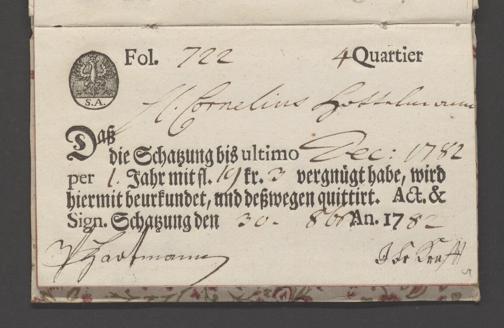 Fol. 722 4 Quartier
S.A.
H. Cornelius
Daß
die Schatzung bis ultimo Dec: 1782
per 1. Jahr mit fl. 19 kr. 3 vergnügt habe, wird
hiermit beurkundet, und deßwegen quittirt. Act. &
Sign. Schatzung den 30. 8br An. 1782
Hartmann